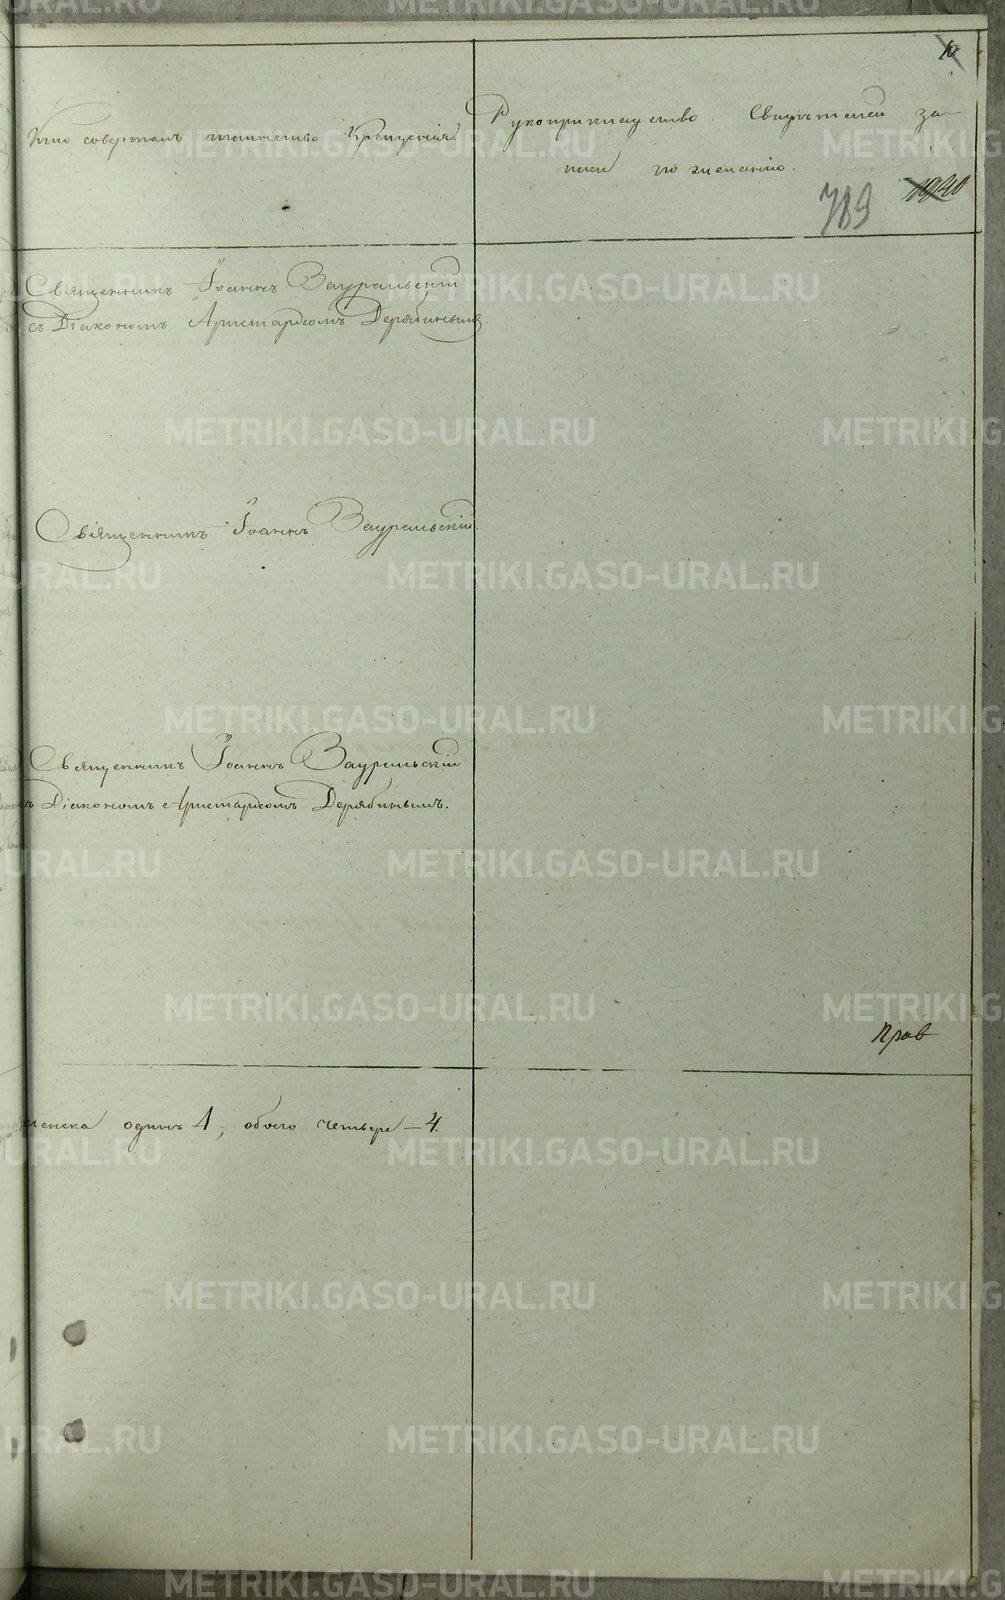 10
Кто совершалъ таинство Крещенія
Рукоприкладство Свидѣтелей за-
писи по желанію.
789
Священникъ Іоаннъ Зауральскій
съ Діакономъ Аристархомъ Дерябинымъ.
Священникъ Іоаннъ Зауральскій.
Священникъ Іоаннъ Зауральскій
съ Діакономъ Аристархомъ Дерябинымъ.
Прав
женска одинъ 1, обоего четыре – 4.
METRIKI.GASO-URAL.RU